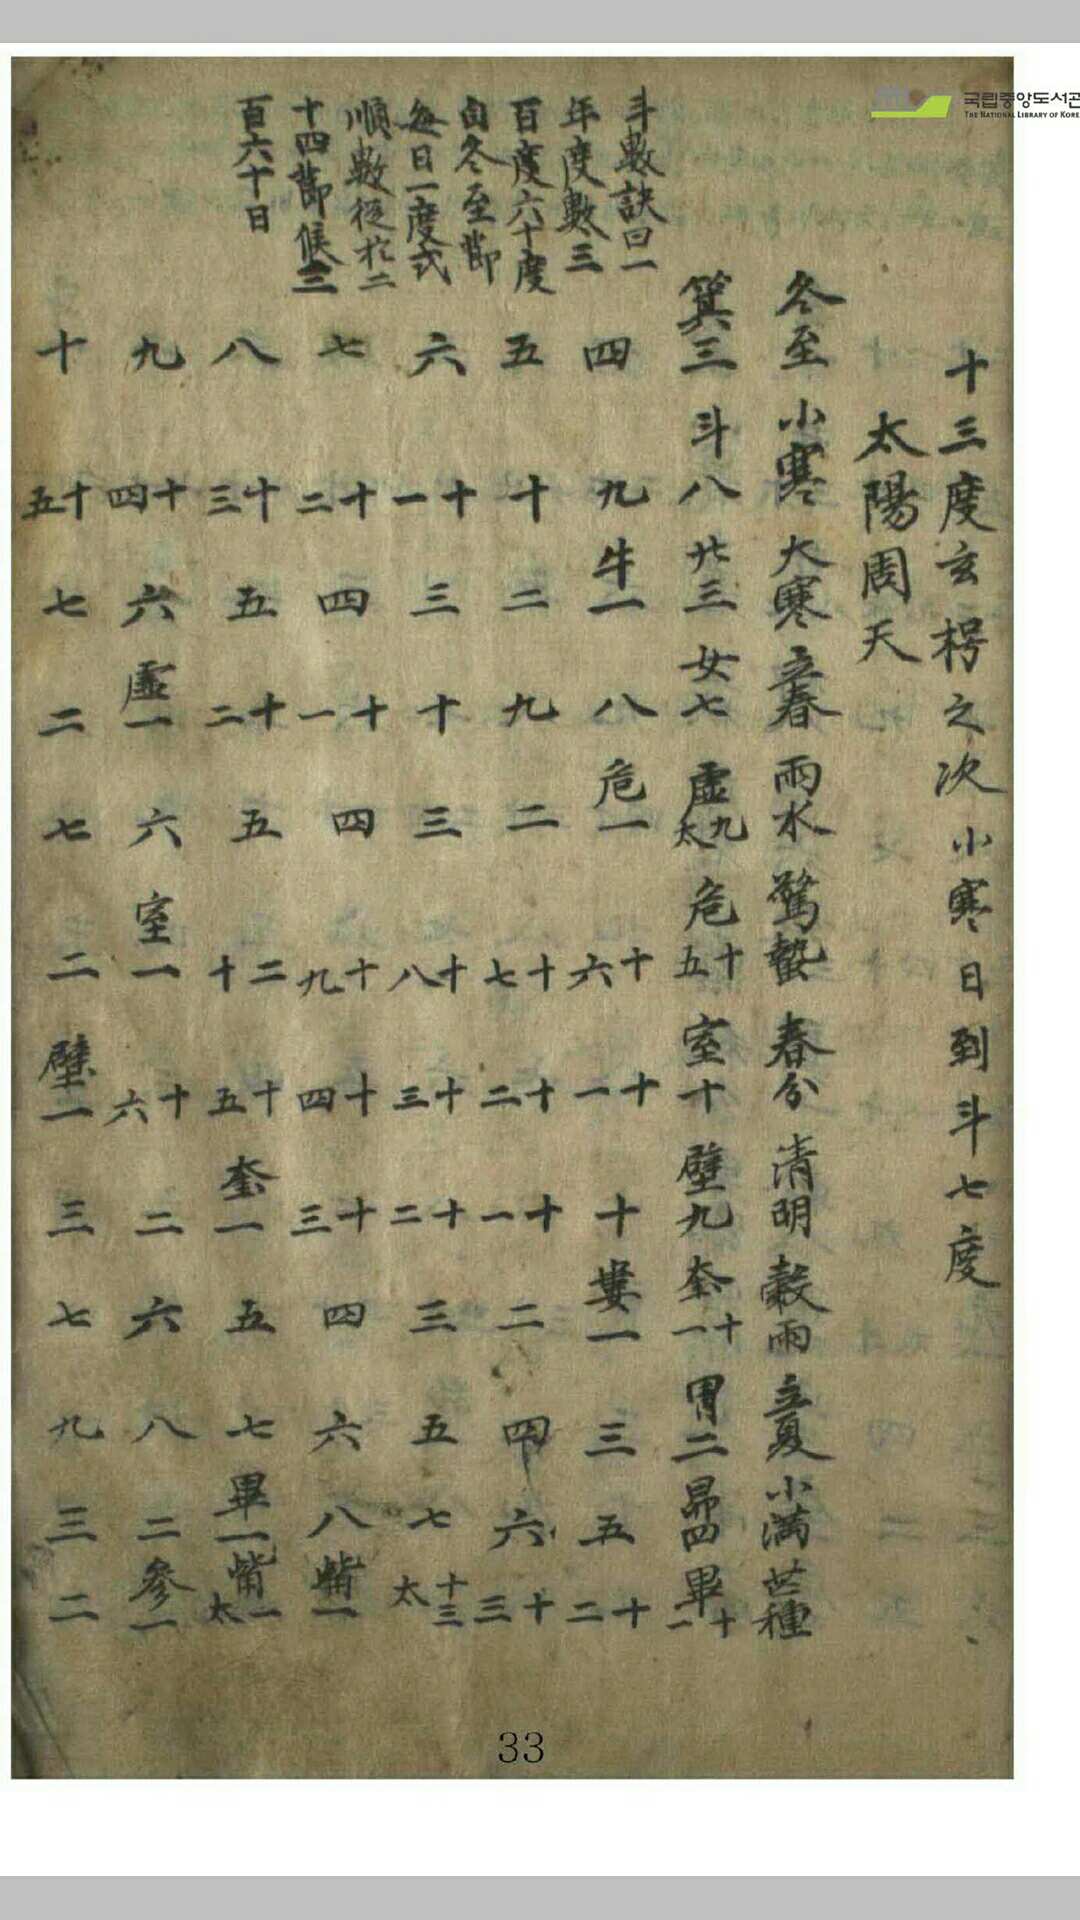 국립중앙도서관
THE NATIONAL LIBRARY OF KOREA
十三度玄枵之次小寒日到斗七度
太陽周天
斗數訣曰一
年度數三
百度六十度
自冬至節
每日一度式
順數從於二
十四節候三
百六十日
冬至 小寒 大寒 立春 雨水 驚蟄 春分 清明 穀雨 立夏 小滿 芒種
箕三 斗八 廿三 女七 虛九太 危十五 室十 壁九 奎十一 胃二 昴四 畢十一
四 九 牛一 八 危一 十六 十一 十 婁一 三 五 十二
五 十 二 九 二 十七 十二 十一 二 四 六 十三
六 十一 三 十 三 十八 十三 十二 三 五 七 十三太
七 十二 四 十一 四 十九 十四 十三 四 六 八 觜一
八 十三 五 十二 五 二十 十五 奎一 五 七 畢一 觜一太
九 十四 六 虛一 六 室一 十六 二 六 八 二 參一
十 十五 七 二 七 二 壁一 三 七 九 三 二
33